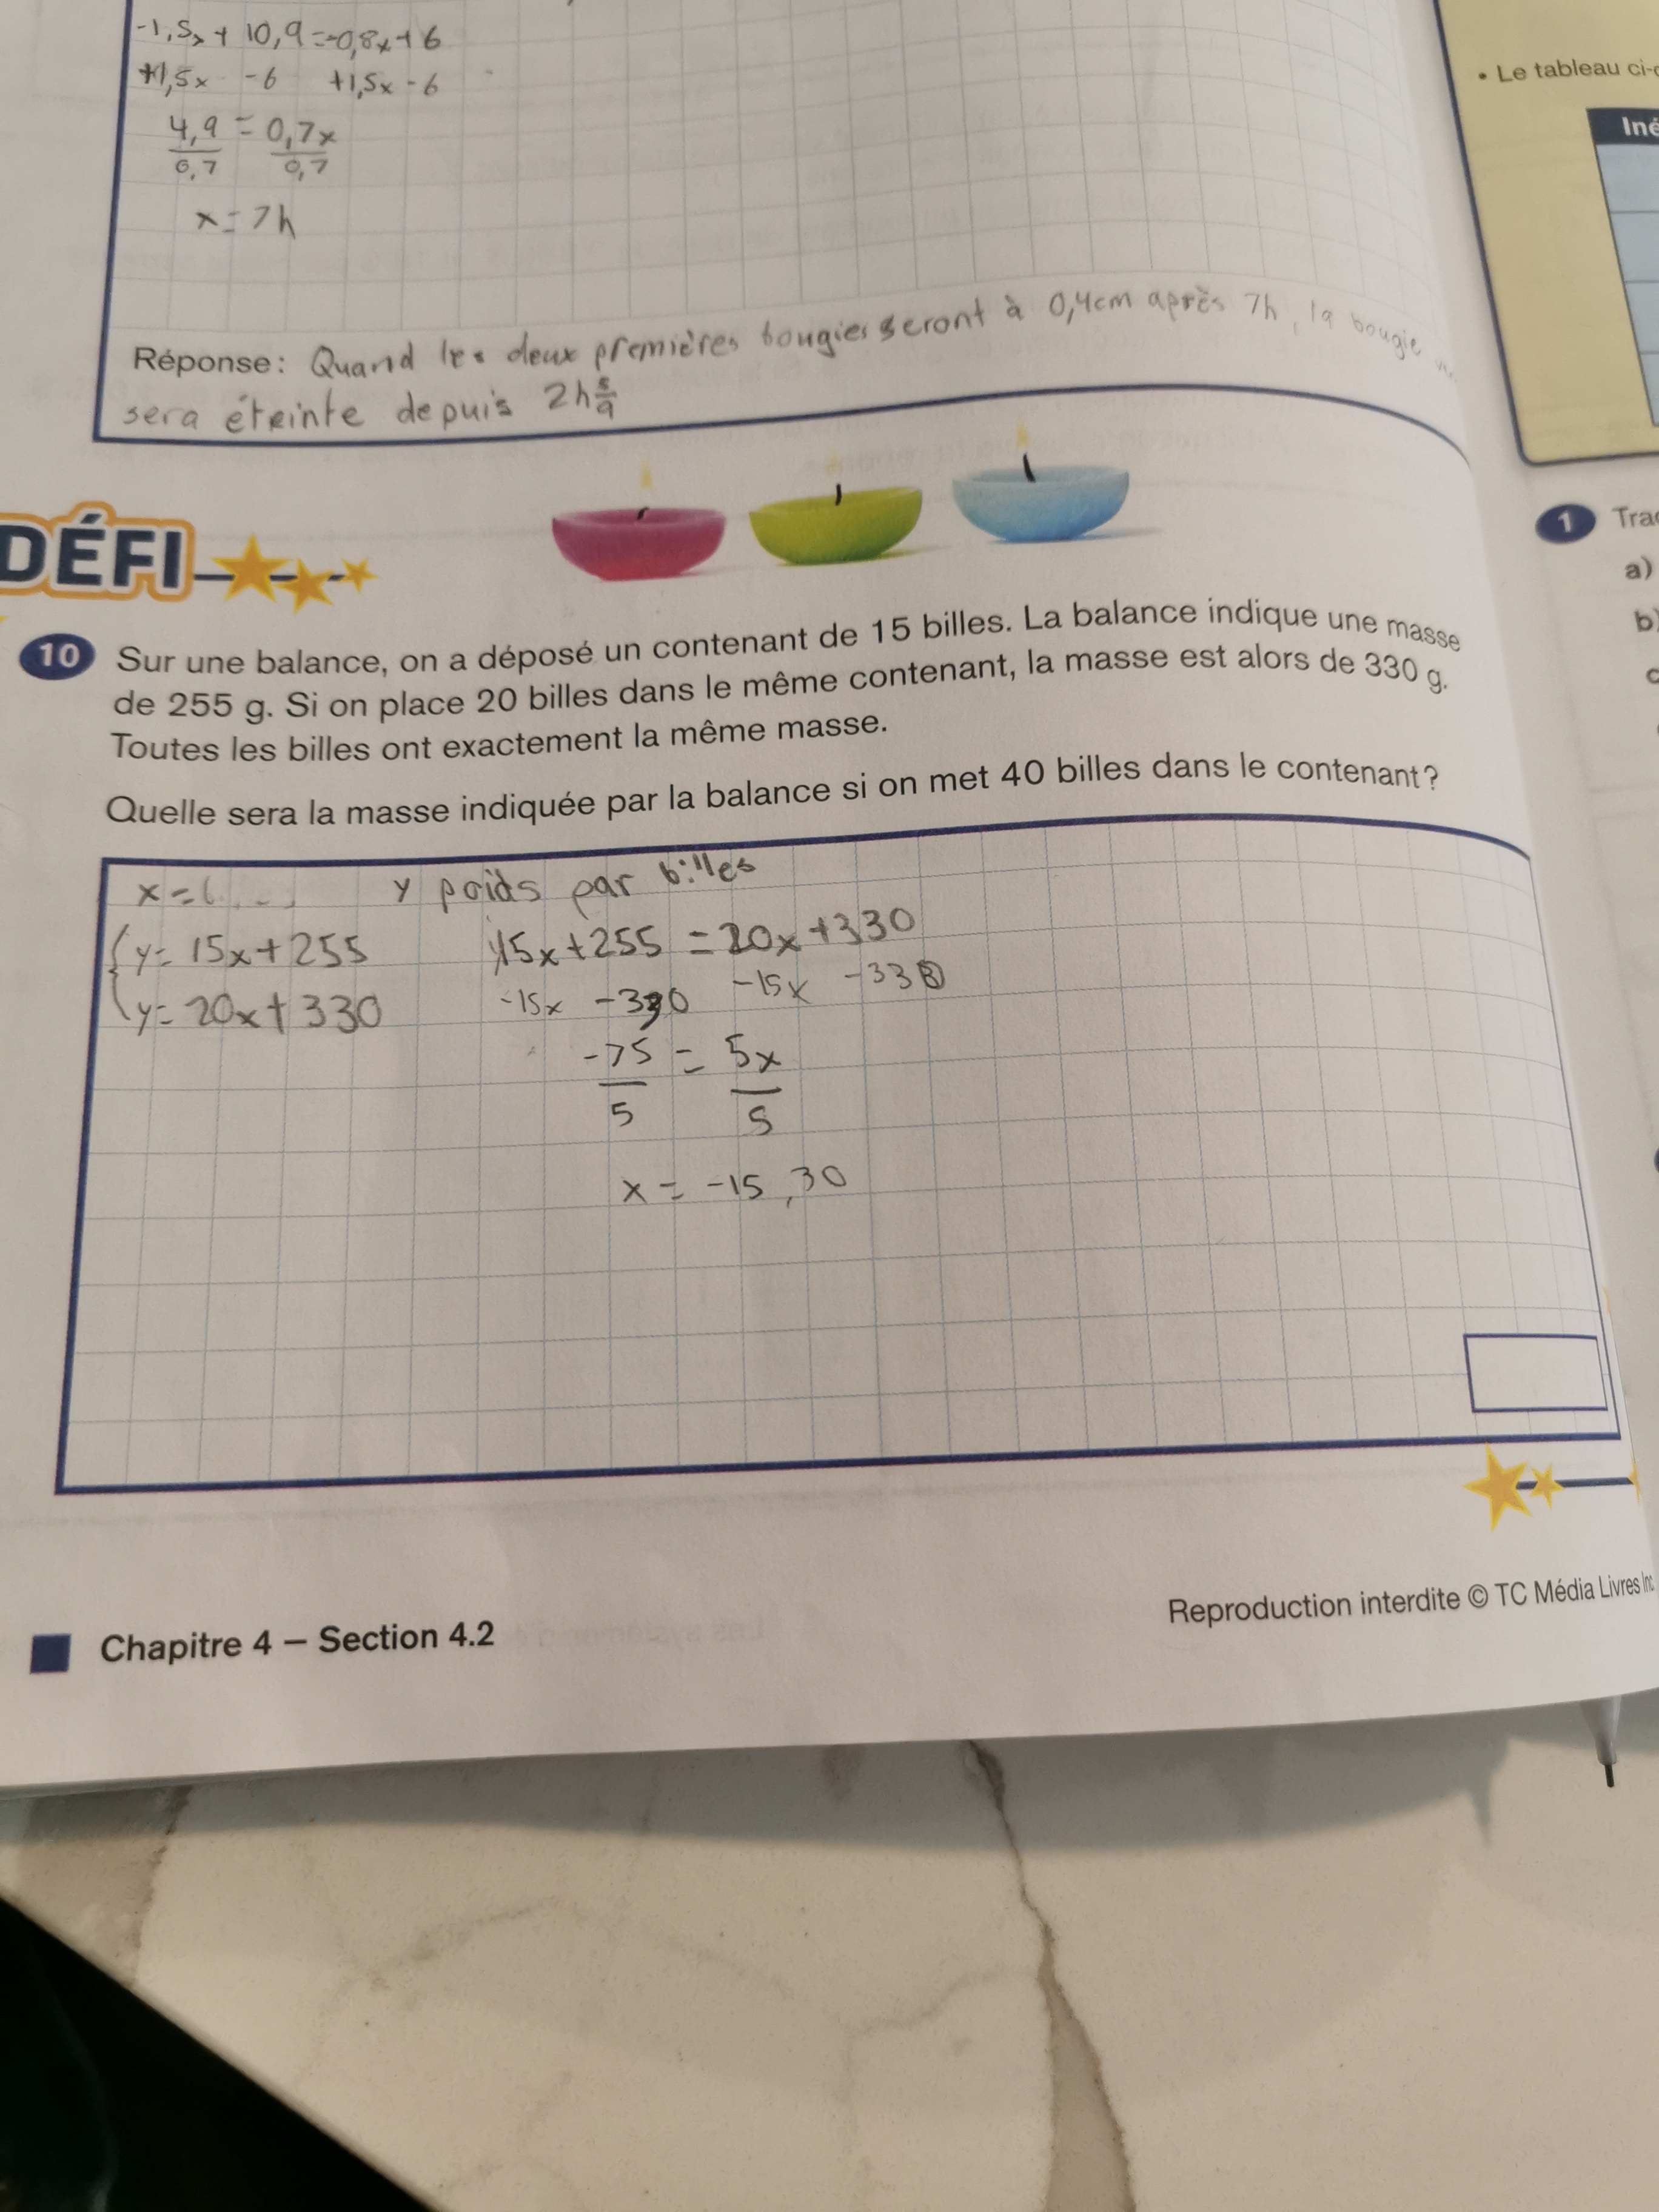 -1,5x + 10,9 = -0,8x + 6
+1,5x -6 +1,5x - 6
4,9 = 0,7x
0,7 0,7
x = 7h
Réponse : Quand les deux premières bougies seront à 0,4cm après 7h, la bougie
sera éteinte depuis 2h 5/9
DÉFI
10 Sur une balance, on a déposé un contenant de 15 billes. La balance indique une masse
de 255 g. Si on place 20 billes dans le même contenant, la masse est alors de 330 g.
Toutes les billes ont exactement la même masse.
Quelle sera la masse indiquée par la balance si on met 40 billes dans le contenant ?
x = y poids par billes
y = 15x + 255 15x + 255 = 20x + 330
y = 20x + 330 -15x -330 -15x -330
-75 = 5x
5 5
x = -15,30
Chapitre 4 – Section 4.2
Reproduction interdite © TC Média Livres Inc.
• Le tableau ci-
1
a)
b)